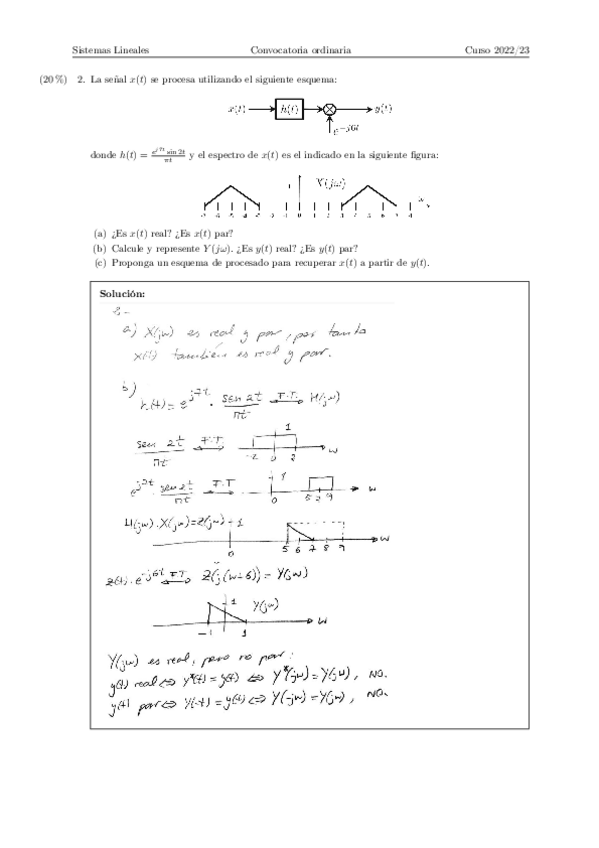 Sistemas Lineales Convocatoria ordinaria Curso 2022/23
(20 %) 2. La señal x(t) se procesa utilizando el siguiente esquema:
x(t) h(t) y(t)
e^{-j6t}
donde h(t) = \frac{e^{j7t} \sin 2t}{\pi t} y el espectro de x(t) es el indicado en la siguiente figura:
X(jω)
(a) ¿Es x(t) real? ¿Es x(t) par?
(b) Calcule y represente Y(jω). ¿Es y(t) real? ¿Es y(t) par?
(c) Proponga un esquema de procesado para recuperar x(t) a partir de y(t).
Solución:
2-
a) X(jω) es real y par, por tanto
x(t) también es real y par.
b)
h(t) = e^{j7t} · \frac{sen 2t}{πt} F.T. H(jω)
1
\frac{sen 2t}{πt} F.T. -2 0 2 ω
e^{j7t} · \frac{sen 2t}{πt} F.T 1 0 5 7 9 ω
H(jω)·X(jω)=Z(jω) 1
0 5 6 7 8 9 ω
z(t)·e^{-j6t} F.T. Z(j(ω+6)) = Y(jω)
1 Y(jω)
-1 1 ω
Y(jω) es real, pero no par:
y(t) real ⇔ y*(t) = y(t) ⇔ Y*(-jω) = Y(jω), NO.
y(t) par ⇔ y(-t) = y(t) ⇔ Y(-jω) = Y(jω), NO.